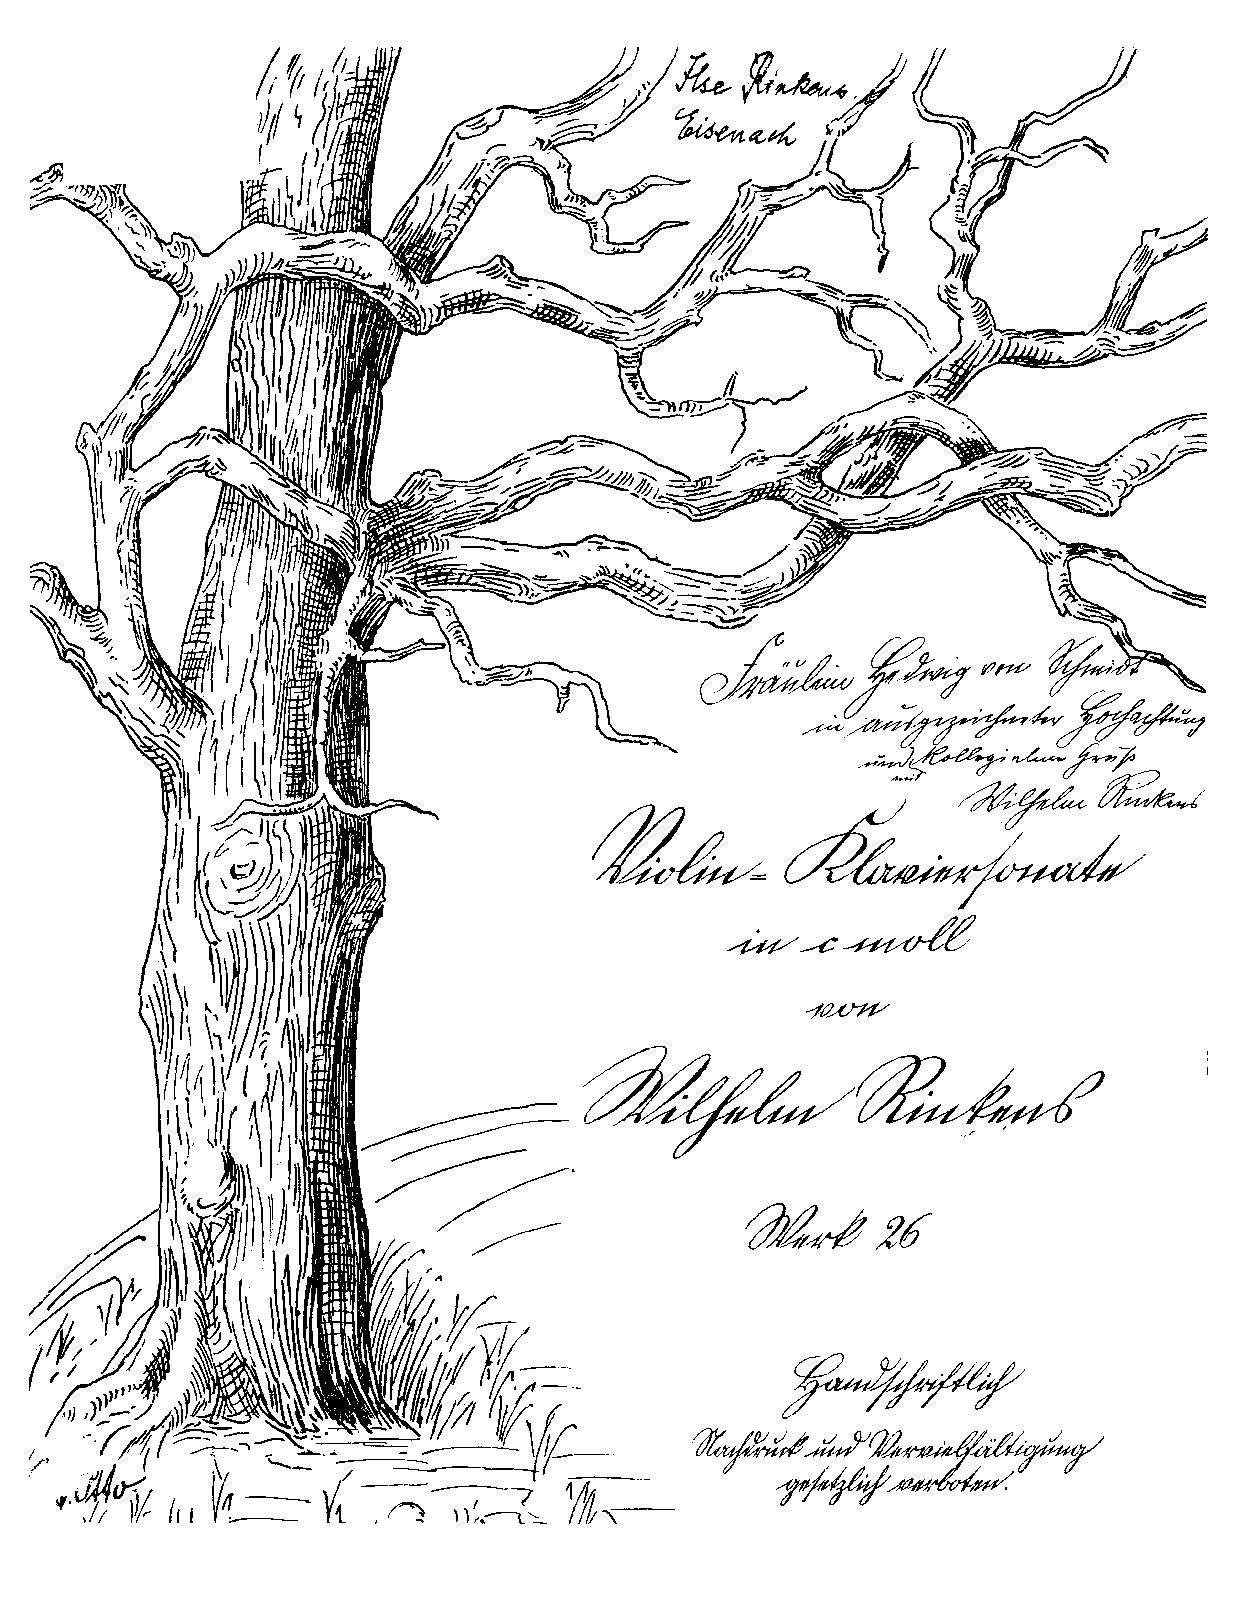 Ilse Rinkens.
Eisenach
Fräulein Hedwig von Schmidt
in ausgezeichneter Hochachtung
und kollegialem Gruß
mit
Wilhelm Rinkens
Violin=Klaviersonate
in c moll
von
Wilhelm Rinkens
Werk 26
Handschriftlich
Nachdruck und Vervielfältigung
gesetzlich verboten.
v. Otto